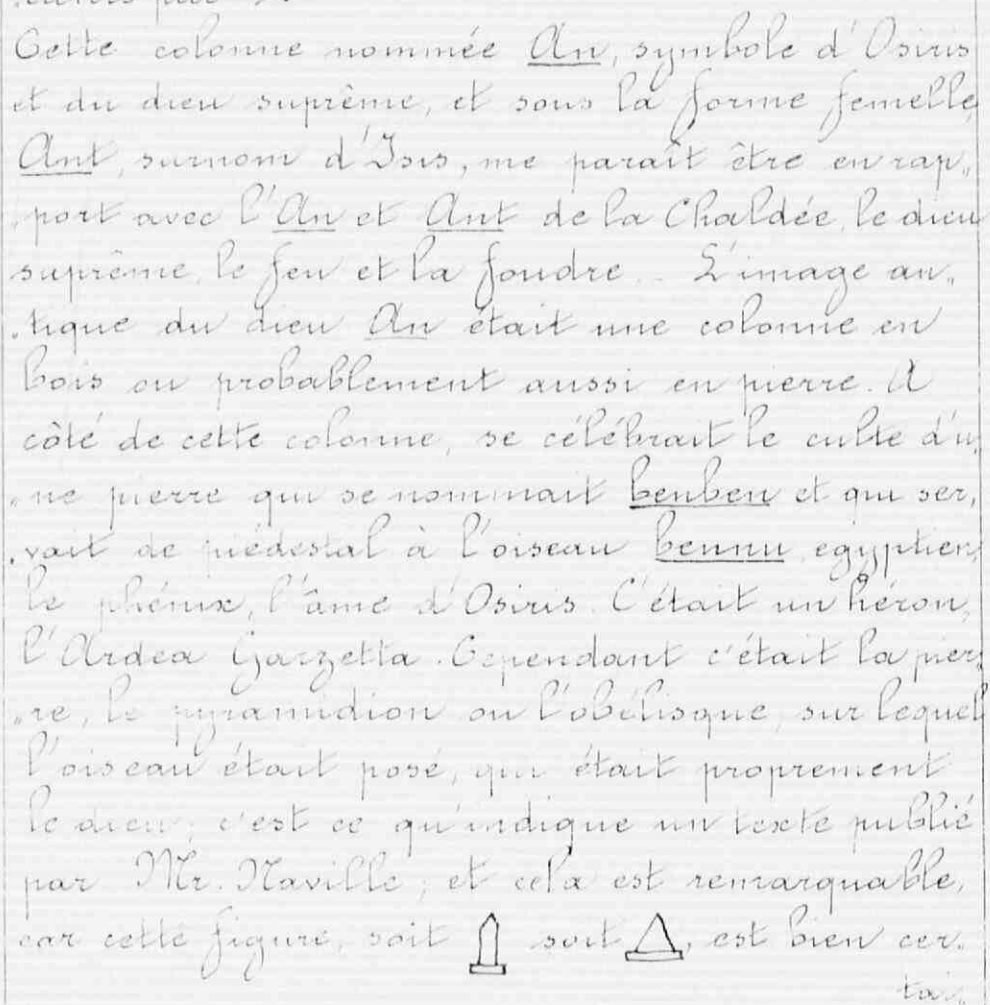 Cette colonne nommée An, symbole d'Osiris
et du dieu suprême, et sous la forme femelle,
Ant, surnom d'Isis, me paraît être en rap„
„port avec l'An et Ant de la Chaldée, le dieu
suprême, le feu et la foudre. – L'image an„
„tique du dieu An était une colonne en
bois ou probablement aussi en pierre. A
côté de cette colonne, se célébrait le culte d'u„
„ne pierre qui se nommait benben et qui ser„
„vait de piédestal à l'oiseau bennu egyptien,
le phénix, l'âme d'Osiris. C'était un héron,
l'Ardea Garzetta. Cependant c'était la pier„
„re, le pyramidion ou l'obélisque, sur lequel
l'oiseau était posé, qui était proprement
le dieu; c'est ce qu'indique un texte publié
par Mr. Naville; et cela est remarquable,
car cette figure, soit soit , est bien cer„
tai„